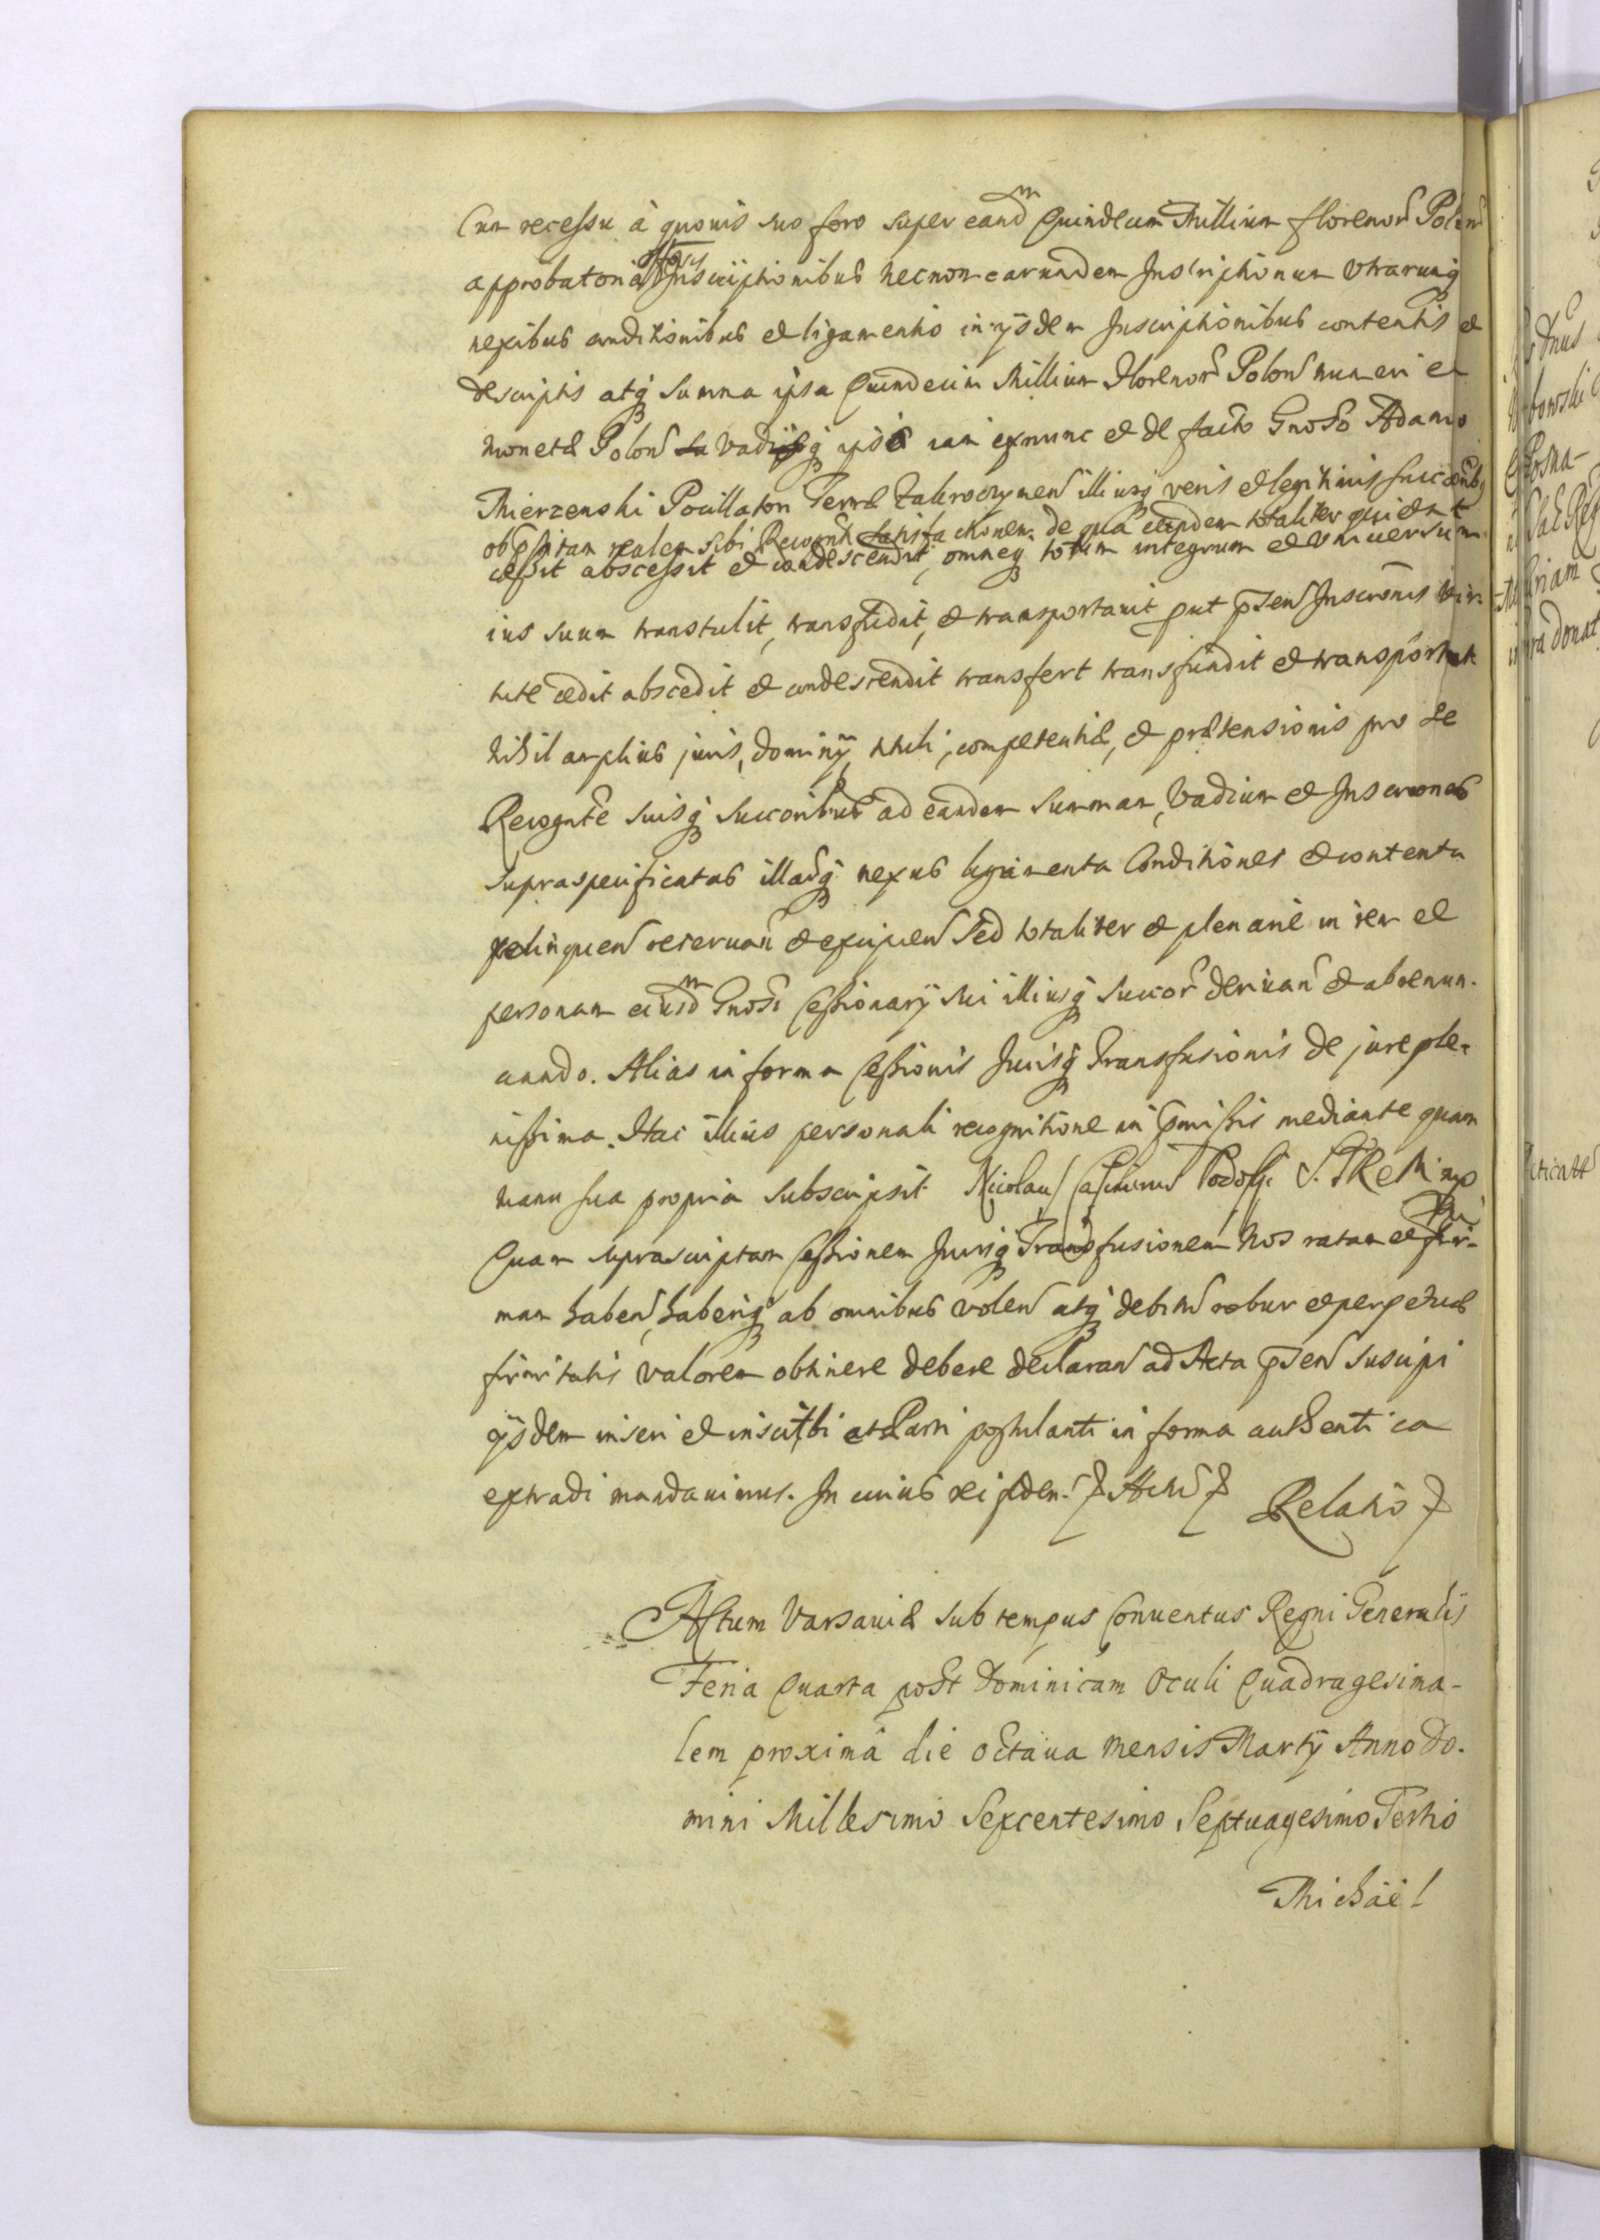 Cum recessu à quovis suo foro super eand Quindecim Millium florenor Polon
approbatoria Inscriptionibus necnon earundem Inscriptionum Utrarumq
nexibus conditionibus et ligamentis in ijsdem Inscriptionibus contentis et
descriptis atq summa ipsa Quindecim Millium Florenor Polon numeri et
monetæ Polon Vadijsq ipsis iam exnunc et de facto Gnoso Adamo
Mierzenski Pocillatori Terræ Zakroczymen illiusq veris et legitimis succorib
ob certam realem sibi Recognti satisfactionem de qua eundem totaliter quietat
cessit abscessit et condescendit, omneq totum integrum et universum
ius suum transtulit, transfudit, et transportavit put psen Inscronis vir-
tute cedit abscedit et condescendit transfert transfundit et transportat
nihil amplius juris, dominij, tituli, competentiæ, et prætensionis pro se
Recognte suisq succoribus ad eandem summam, Vadium et Inscrones
supraspecificatas illarq nexus ligamenta Conditiones et contenta
relinquen reservan et excipien sed totaliter et plenarie in rem et
personam eiusd Gnosi Cessionarij sui illiusq succor derivan et abrenun-
ciando. Alias in forma Cessionis Jurisq Transfusionis de jure ple-
nissima. Hac illius personali recognitione in pmissis mediante quam
manu sua propria subscripsit. Nicolaus Casimirus Podoski S. T. R. mp
Quam suprascriptam Cessionem Jurisq Transfusionem Nos ratam et fir-
mam haben, haberiq ab omnibus volen atq debitu robur et perpetuæ
firmitatis valorem obtinere debere declaran ad Acta psen suscipi
ijsdem inseri et inscribi et Parti postulanti in forma authentica
extradi mandavimus. In cuius rei fidem. Actu Relatio
Actum Varsaviæ sub tempus Conventus Regni Generalis
Feria Quarta post Dominicam Oculi Quadragesima-
lem proximâ die octava mensis Martij Anno Do-
mini Millesimo Sexcentesimo Septuagesimo Tertio
Michäel